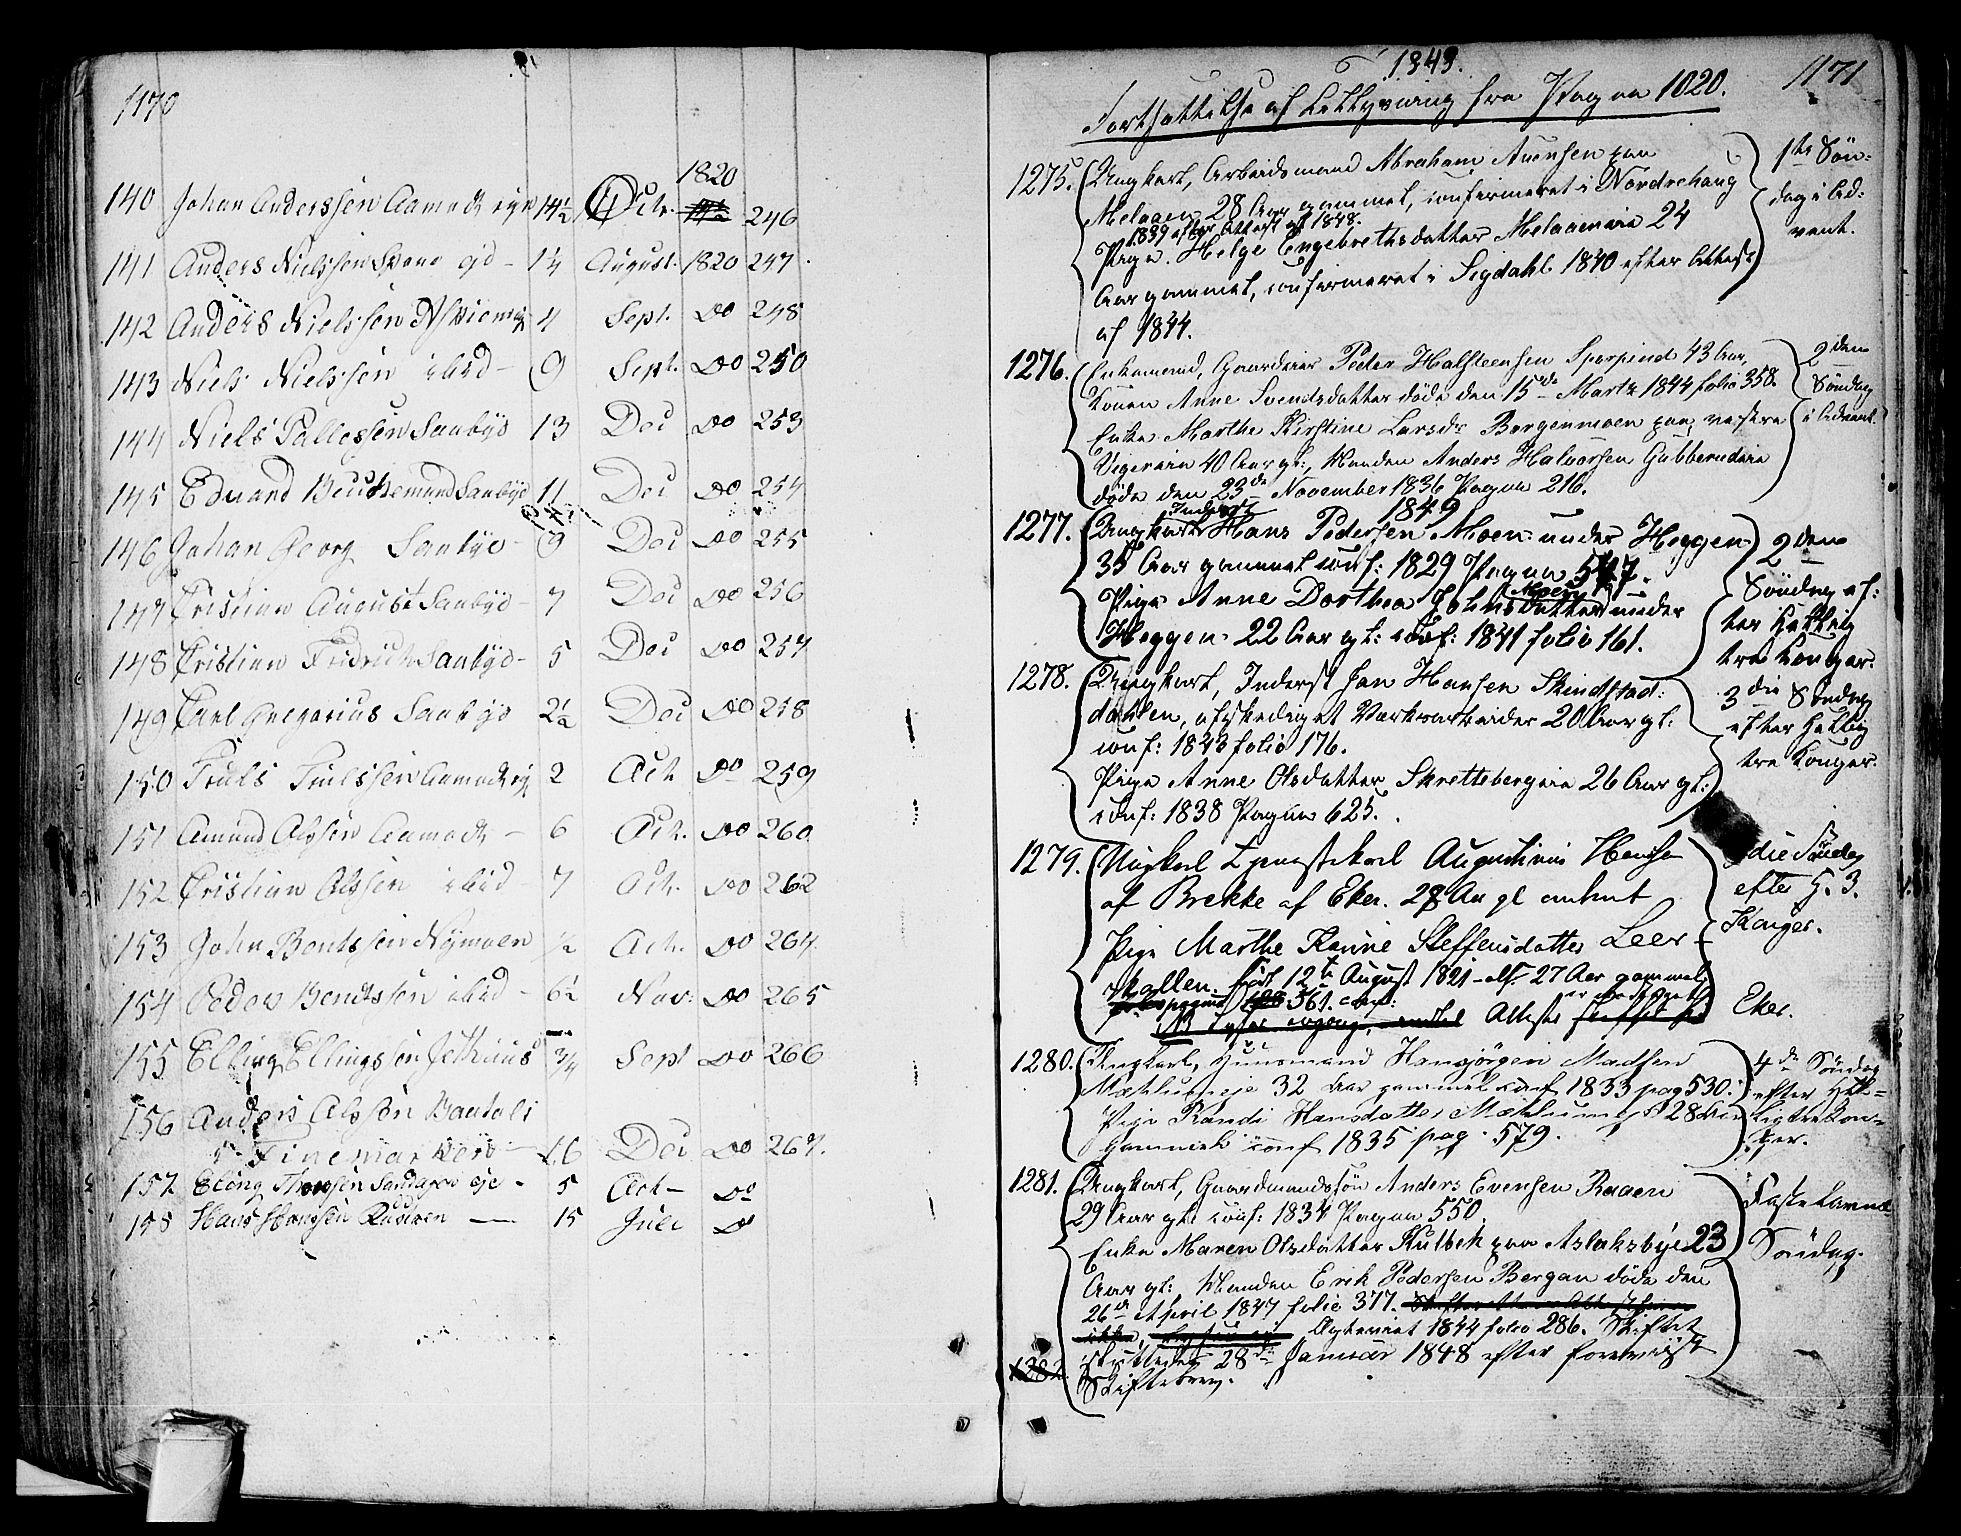 1170
1820
140 Johan Anderssen Aamodt eje 14½ Octr. 246
141 Anders Nielssen Svene ejd - 1¼ August. 1820 247.
142 Anders Nielssen 4 Sept. do 248
143 Niels Nielssen ibid - 9 Sept. do 250
144 Niels Pallessen Saubye 13 Dec do 253
145 Eduard Saubye 11 Dec do 254
146 Johan Georg Saubye - 9 Dec do 255
147 Cristian August Saubye - 7 Dec do 256
148 Cristian Fridrich Saubye - 5 Dec do 257
149 Carl Gregorius Saubye 2½ Dec do 258
150 Truls Trulssen Aamodt ej 2 Oct do 259
151 Amund Olssen Aamodt - 6 Oct. do 260
152 Cristian Olssen ibid - 7 Oct. do 262
153 John Bentssen Nymoen ½ Oct. do 264
154 Peder Bendtssen ibid - 6½ Nov: do 265
155 Elling Ellingssen 3/4 Sept do 266
156 Anders Olssen
16 Dec do 267.
157 Eling eje - 5 Oct - do
158 Hans Hanssen Rustien — 15 Juli do
1848.
1171
Fortsættelse af Tillysning fra Pagna 1020.
1275. Ungkarl, Arbeidsmand Abraham Auensen paa
Melaaen 28 Aar gammel, confirmeret i Nordrehaug
1839 efter Attest af 1848.
Pige Helge Engebrethsdatter Melaaeneie 24
Aar gammel, confirmeret i Sigdahl 1840 efter Attest
af 1844.
1ste Søn-
dag i Ad-
vent.
1276. Enkemand, Gaardeier Peder Halsteensen Sporpind 43 Aar,
Konen Anne Svendsdatter døde den 15de Martz 1844 folio 358.
Enke Marthe Kirstine Larsdr Bergenmoen paa vestre
Vigereie 40 Aar gl:, Manden Anders Halvorsen Gubberudeie
døde den 23de November 1836 Pagna 216.
2den
Søndag
i Advent.
1849
1277. Ungkarl Inderst Hans Pedersen Moen under Heggen
35 Aar gammel conf: 1829 Pagna 547.
Pige Anne Dorthea Johnsdatter Moen under
Heggen 22 Aar gl: conf: 1841 folio 161.
2den
Søndag ef:
ter Hellig
tre Konger:
1278. Ungkarl, Inderst Jan Hansen Skindstad:
dahlen, afskediget Værksarbeider 20 Aar gl:
conf: 1843 folio 176.
Pige Anne Olsdatter Skrettebergeie 26 Aar gl:
conf: 1838 Pagna 625.
3die Søndag
efter Hellig
tre Konger.
1279. Ungkarl Tjenestekarl Augustinius Hansen
af Brekke af Eker. 28 Aar gl
Pige Marthe Karine Steffensdatter Leer-
skallen. født 12te August 1821 - 27 Aar gammel
361. conf:
Attest
3die Søndag
efter H. 3.
Konger.
Eker.
1280. Ungkarl, Huusmand Hansjörgen Madsen
32 Aar gammel conf 1833 pag 530.
Pige Randi Hansdatter 28 Aar
Gammel conf 1835 pag. 579.
4de Søndag
efter Hel-
ligtrekon-
ger.
1281. Ungkarl, Gaardmandssøn Anders Evensen Raaen
29 Aar gl: conf: 1834 Pagna 550
Enke Maren Olsdatter Kulbek paa Aslaksbye 23
Aar gl: Manden Erik Pedersen Bergan døde den
26de April 1847 folio 377.
Ægteviet 1844 folio 286. Skiftet
sluttedes 28de Januar 1848 efter foreviist
Skiftebrev.
Fastelavns-
Søndag.
1282.